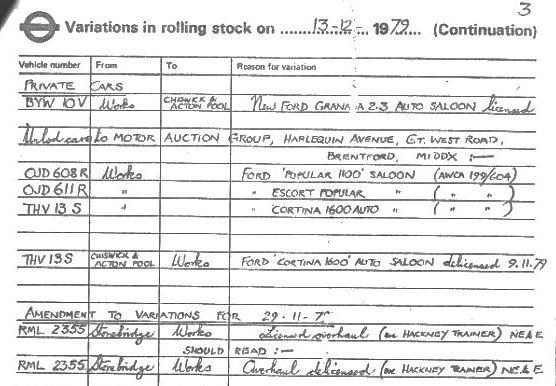 3
Variations in rolling stock on 13-12- 1979 (Continuation)
Vehicle number From To Reason for variation
PRIVATE CARS
BYW 10V Works CHISWICK & ACTON POOL New FORD GRANADA 2.3 AUTO SALOON licensed
Unlsd cars to MOTOR AUCTION GROUP, HARLEQUIN AVENUE, GT. WEST ROAD,
BRENTFORD, MIDDX :—
OJD 608R Works FORD 'POPULAR 1100' SALOON (AWCA 199/CO4)
OJD 611R " " ESCORT POPULAR " ( " " )
THV 13 S " " 'CORTINA 1600 AUTO " ( " " )
THV 13S CHISWICK & ACTON POOL Works FORD 'CORTINA 1600' AUTO SALOON delicensed 9.11.79
AMENDMENT TO VARIATIONS FOR 29-11-79
RML 2355 Stonebridge Works Licensed overhaul (ex HACKNEY TRAINER) NE&E
SHOULD READ :—
RML 2355 Stonebridge Works Overhaul delicensed (ex HACKNEY TRAINER) NE&E